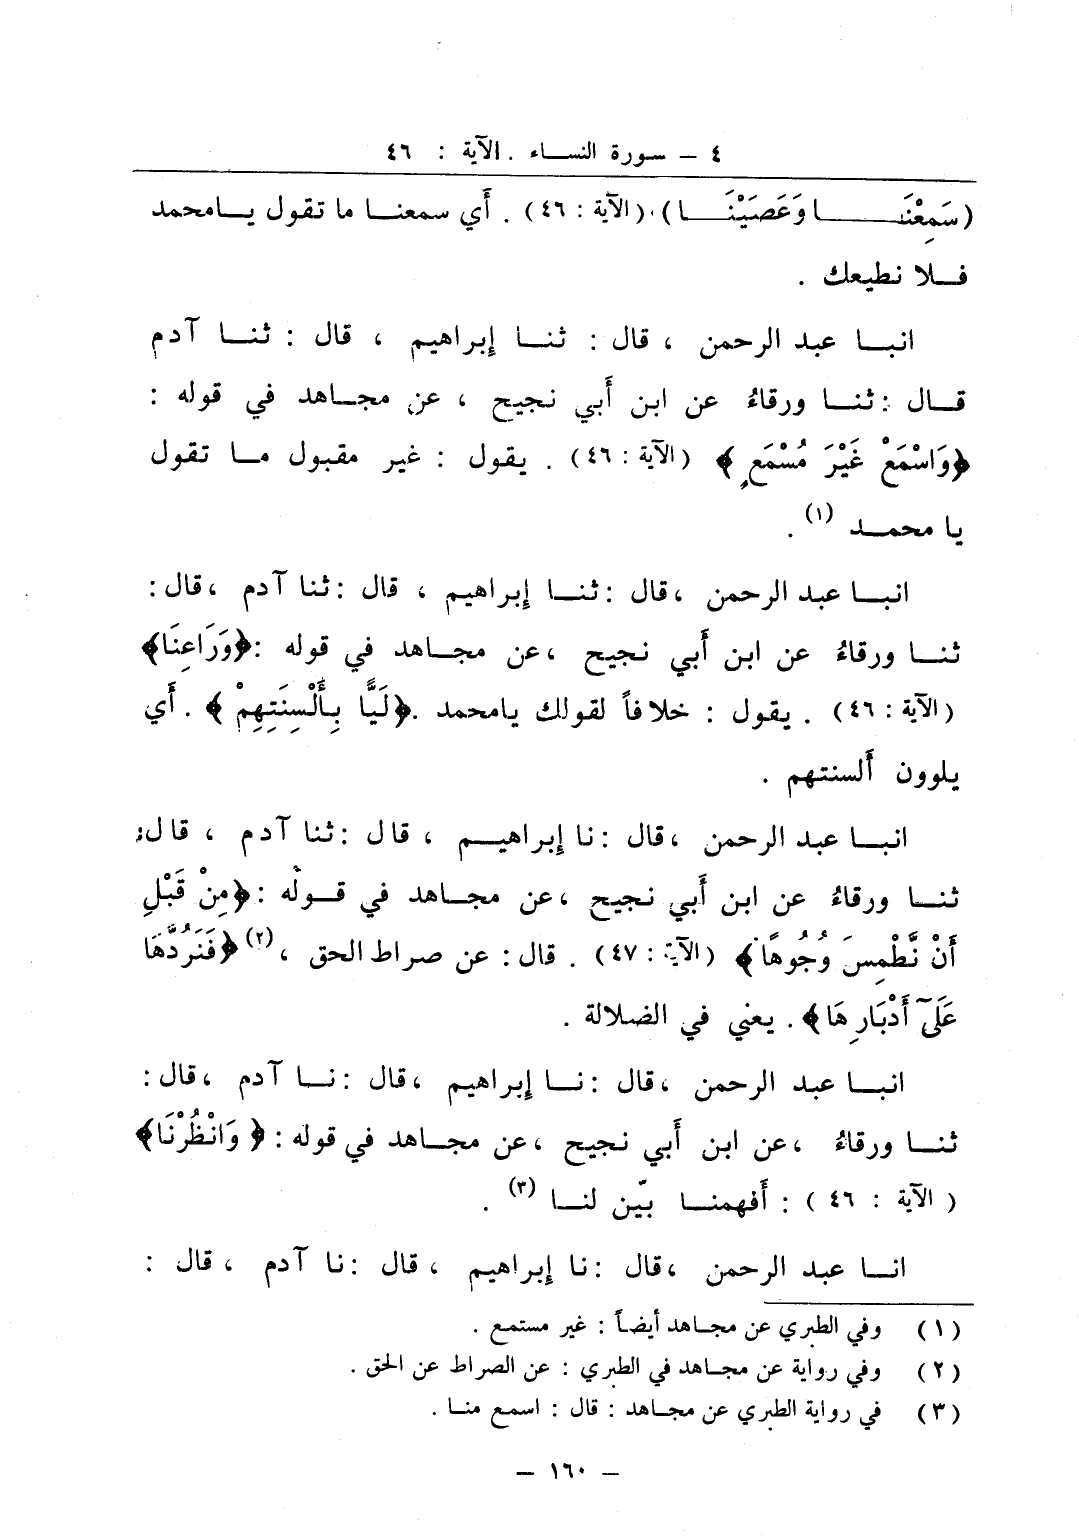 ٤ - سورة النساء . الآية : ٤٦
(سَمِعْنَا وَعَصَيْنَا)٠(الآية : ٤٦) . أَي سمعنا ما تقول يامحمد
فلا نطيعك .
انبا عبد الرحمن ، قال : ثنا إبراهيم ، قال : ثنا آدم
قال : ثنا ورقاءُ عن ابن أَبي نجيح ، عن مجاهد في قوله :
﴿وَاسْمَعْ غَيْرَ مُسْمَعٍ﴾ (الآية : ٤٦) . يقول : غير مقبول ما تقول
يا محمد (١) .
انبا عبد الرحمن ،قال : ثنا إبراهيم ، قال : ثنا آدم ،قال :
ثنا ورقاءُ عن ابن أَبي نجيح ،عن مجاهد في قوله :﴿وَرَاعِنَا﴾
(الآية : ٤٦) . يقول : خلافاً لقولك يامحمد .﴿لَيًّا بِأَلْسِنَتِهِمْ﴾ . أَي
يلوون أَلسنتهم .
انبا عبد الرحمن ،قال : نا إبراهيم ، قال : ثنا آدم ، قال :
ثنا ورقاءُ عن ابن أَبي نجيح ،عن مجاهد في قوله :﴿مِنْ قَبْلِ
أَنْ نَّطْمِسَ وُجُوهًا﴾ (الآية : ٤٧) . قال : عن صراط الحق ،(٢)﴿فَنَرُدَّهَا
عَلَىٰٓ أَدْبَارِهَا﴾ . يعني في الضلالة .
انبا عبد الرحمن ،قال : نا إبراهيم ،قال : نا آدم ،قال :
ثنا ورقاءُ ،عن ابن أَبي نجيح ،عن مجاهد في قوله :﴿ وَانْظُرْنَا﴾
( الآية : ٤٦ ) : أَفهمنا بيّن لنا (٣) .
انا عبد الرحمن ،قال : نا إبراهيم ، قال : نا آدم ، قال :
(١) وفي الطبري عن مجاهد أيضاً : غير مستمع .
(٢) وفي رواية عن مجاهد في الطبري : عن الصراط عن الحق .
(٣) في رواية الطبري عن مجاهد : قال : اسمع منا .
- ١٦٠ -